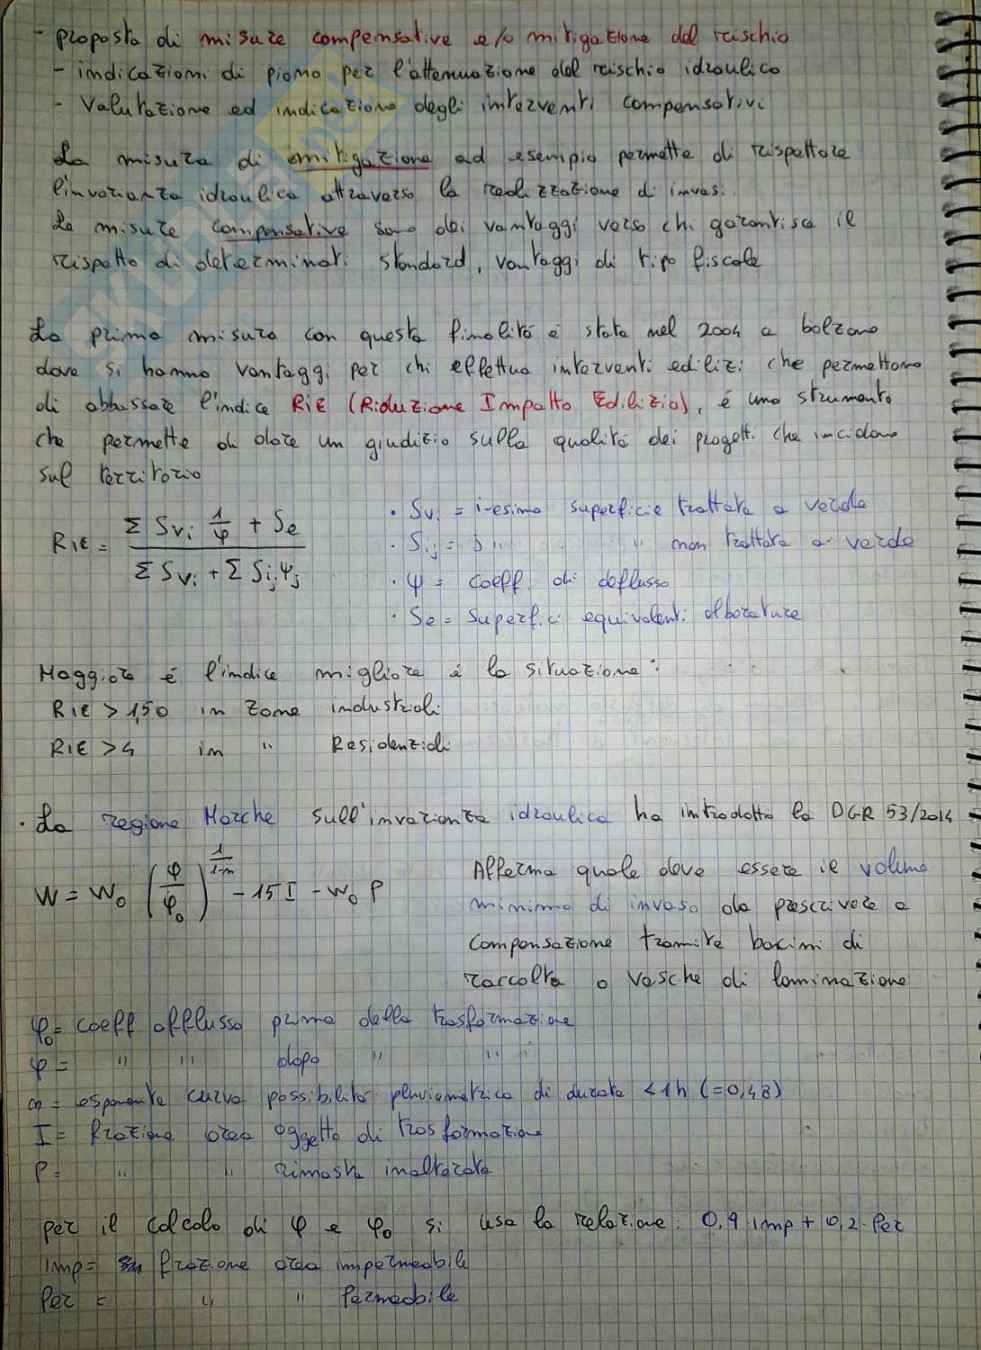 - proposta di misure compensative e/o mitigazione del rischio
- indicazioni di piano per l'attenuazione del rischio idraulico
- Valutazione ed indicazione degli interventi compensativi
La misura di mitigazione ad esempio permette di rispettare
l'invarianza idraulica attraverso la realizzazione di invasi.
Le misure compensative sono dei vantaggi verso chi garantisce il
rispetto di determinati standard, vantaggi di tipo fiscale
La prima misura con questa finalità è stata nel 2004 a bolzano
dove si hanno vantaggi per chi effettua interventi edilizi che permettono
di abbassare l'indice RIE (Riduzione Impatto Edilizio), é uno strumento
che permette di dare un giudizio sulla qualità dei progetti che incidono
sul territorio
RIE = (Σ Svi 1/φ + Se) / (Σ Svi + Σ Sij ψj)
· Svi = i-esima superficie trattata a verde
· Sij = j " " " non trattata a verde
· ψ = coeff. di deflusso
· Se = Superfici equivalenti alberature
Maggiore é l'indice migliore é la situazione:
RIE > 1,50 in zone industriali
RIE > 4 in " Residenziali
· La regione Marche sull'invarianza idraulica ha introdotto la DGR 53/2014
W = W₀ (φ/φ₀)^(1/(1-n)) - 15 I - W₀ P
Afferma quale deve essere il volume
minimo di invaso da prescrivere a
compensazione tramite bacini di
raccolta o vasche di laminazione
φ₀ = coeff afflusso prima della trasformazione
φ = " " dopo " "
n = esponente curva possibilità pluviometrica di durata < 1h (=0,48)
I = frazione area oggetto di trasformazione
P = " " rimasta inalterata
per il calcolo di φ e φ₀ si usa la relazione: 0,9 imp + 0,2 · Per
Imp = frazione area impermeabile
Per = " " Permeabile
SKUOLA.net